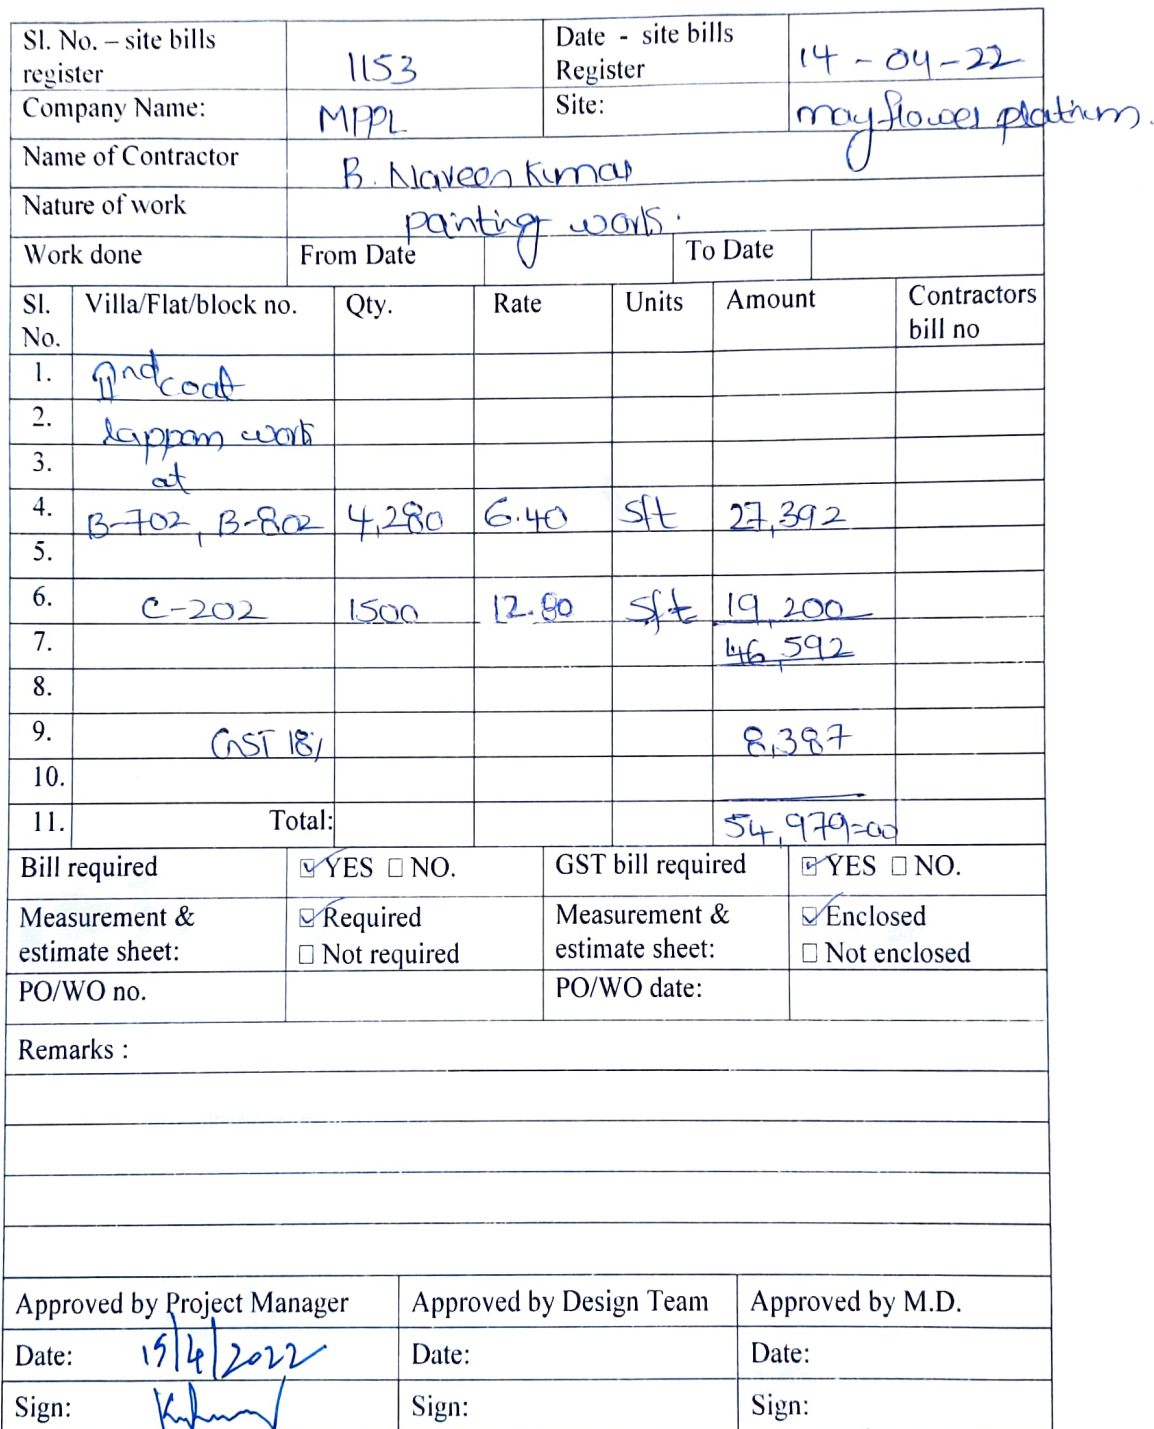 Sl. No. – site bills register 1153 Date - site bills Register 14-04-22
Company Name: MPPL Site: mayflower platinum.
Name of Contractor B. Naveen Kumar
Nature of work painting work.
Work done From Date To Date
Sl. No. Villa/Flat/block no. Qty. Rate Units Amount Contractors bill no
1. IInd coat
2. lappam work
3. at
4. B-702, B-802 4,280 6.40 sft 27,392
5.
6. C-202 1500 12.80 sft 19,200
7. 46,592
8.
9. GST 18% 8,387
10.
11. Total: 54,979=00
Bill required ☑ YES ☐ NO. GST bill required ☑ YES ☐ NO.
Measurement & estimate sheet: ☑ Required ☐ Not required Measurement & estimate sheet: ☑ Enclosed ☐ Not enclosed
PO/WO no. PO/WO date:
Remarks :
Approved by Project Manager Approved by Design Team Approved by M.D.
Date: 15/4/2022 Date: Date:
Sign: Sign: Sign: